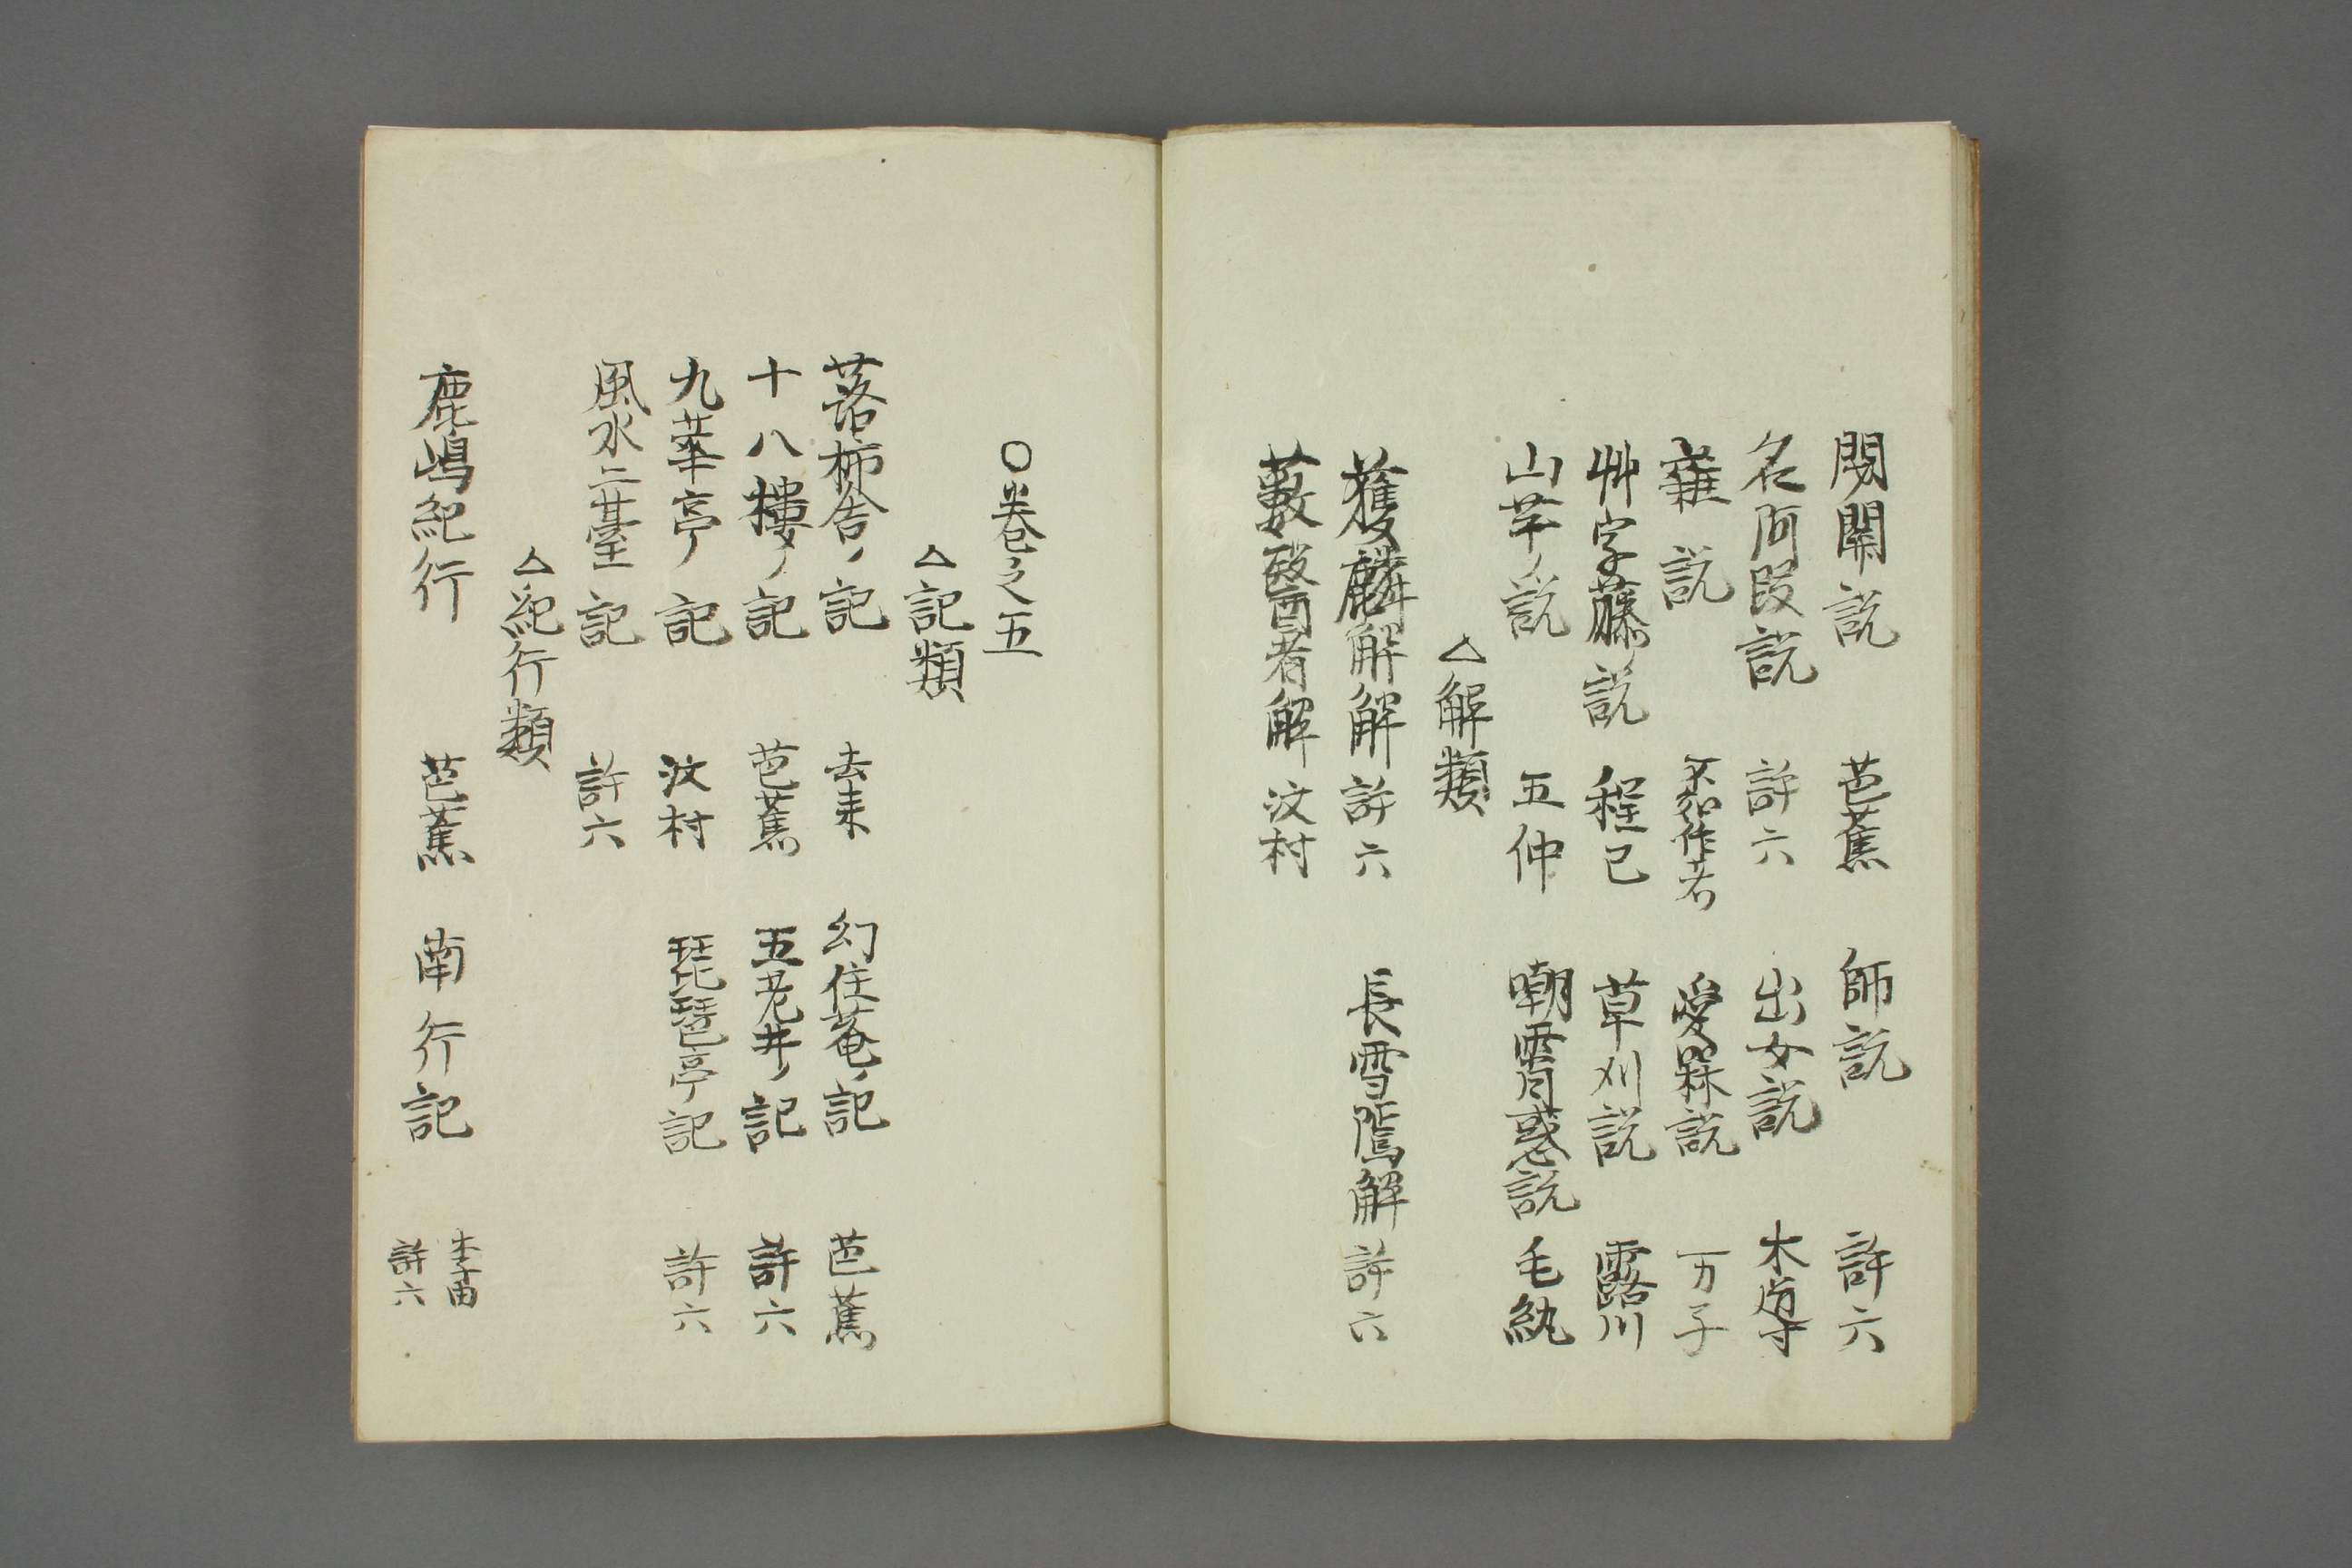 閉關説　芭蕉　師説　許六
名阿段説　許六　出女説　木導
蘿説　不知作者　愛槑説　万子
艸字藤説　程己　草刈説　露川
山芋ノ説　五仲　嘲霄惑説　毛紈
△解類
獲麟解解　許六　長雪隠解　許六
藪醫者解　汶村
〇巻之五
△記類
落柿舎ノ記　去来　幻住菴ノ記　芭蕉
十八樓ノ記　芭蕉　五老井ノ記　許六
九華亭ノ記　汶村　琵琶亭ノ記　許六
風水二臺記　許六
△紀行類
鹿嶋紀行　芭蕉　南行記　李由
許六